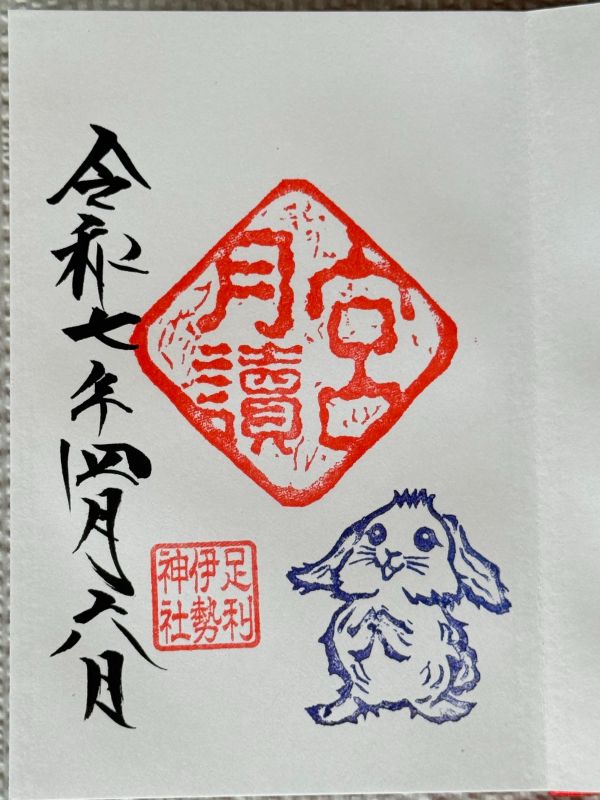 月讀
宮
足利
伊勢
神社
令和七年四月六日